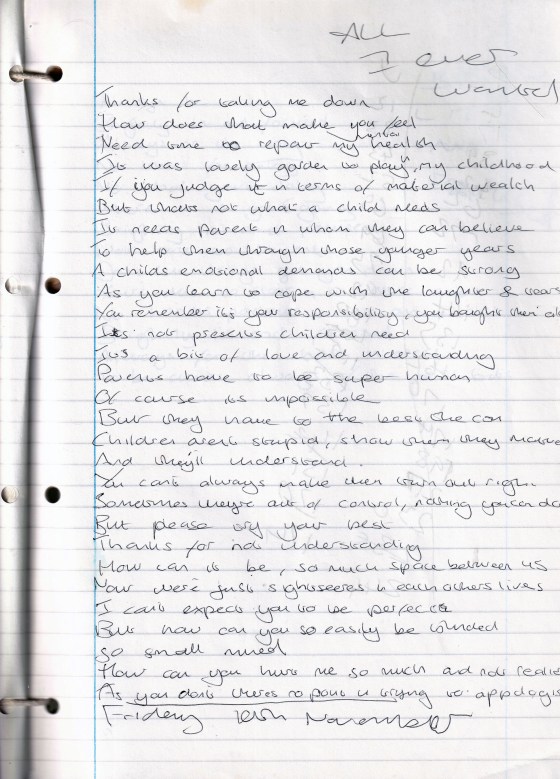 All
I ever
Wanted
Thanks for taking me down
How does that make you feel
Need time to repair my mental health
It was lovely garden to play in, my childhood
If you judge it in terms of material wealth
But thats not what a child needs
It needs parent in whom they can believe
To help then through those younger years
A childs emotional demands can be strong
As you learn to cope with the laughter & tears
You remember its your responsibility, you bought them
Its not presents children need
Its a bit of love and understanding
Parents have to be super human
Of course its impossible
But they have to the best the can
Children arent stupid, show them they matter
And they'll understand.
You cant always make then turn out right.
Sometimes they're out of control, nothing you can do
But please try your best
Thanks for not understanding
How can it be, so much space between us
Now we're just sightseers in each others lives
I cant expect you to be perfect
But how can you so easily be blinded
So small mined
How can you hurt me so much and not
As you dont theres no point in trying to
Friday 10th November